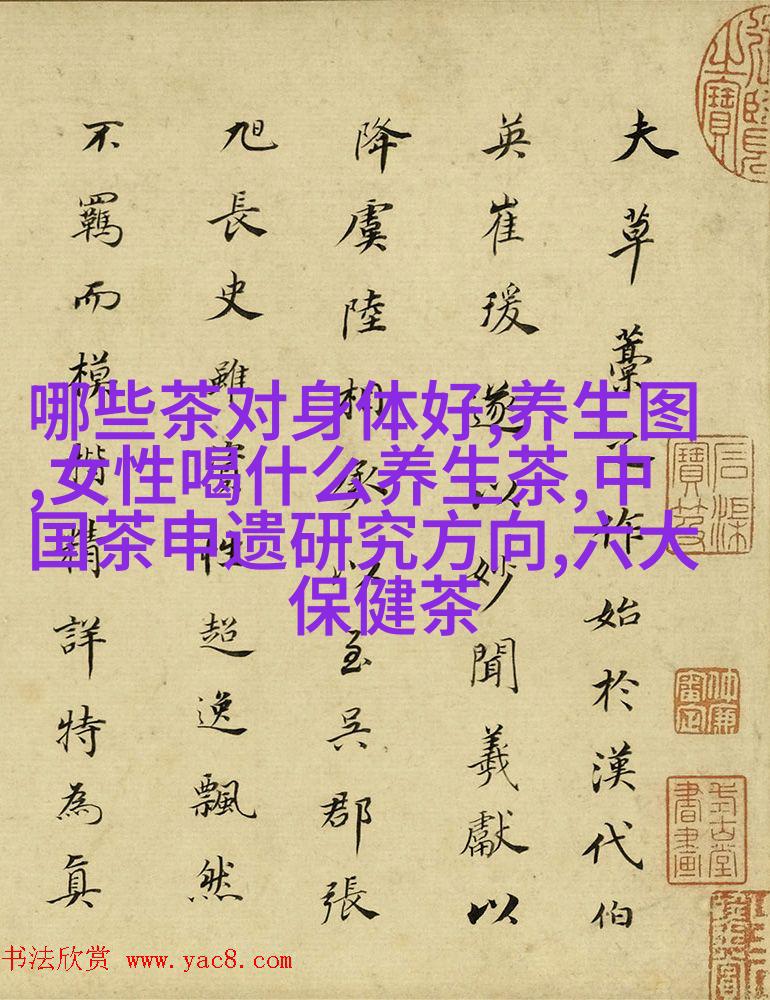 夫草藁之作始於漢代伯
英崔瑗遂以妙聞羲獻以
降虞陸相承以至吳郡張
旭長史雖姿性超逸飄然
不羈而模楷精詳特為真
哪些茶对身体好,养生图
,女性喝什么养生茶,中
国茶申遗研究方向,六大
保健茶
书法欣赏 www.yac8.com